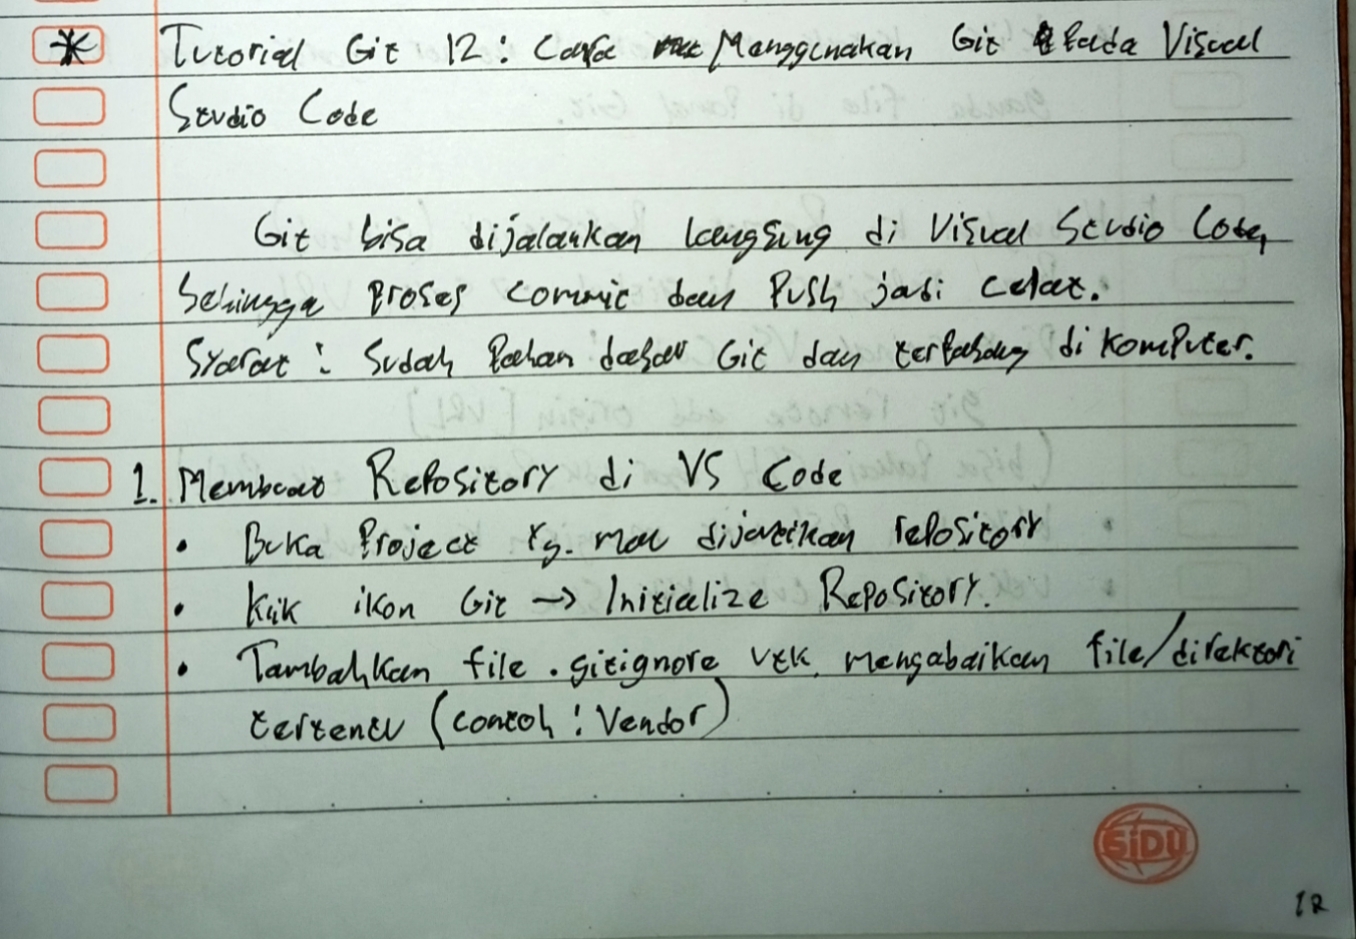 * Tutorial Git 12 : Cara Menggunakan Git Pada Visual
Studio Code
Git bisa dijalankan langsung di Visual Studio Code,
Sehingga proses commit dan Push jadi cepat.
Syarat : Sudah Paham dasar Git dan terpasang di komputer.
1. Membuat Repository di VS Code
• Buka Project yg. mau dijadikan repository
• Klik ikon Git → Initialize Repository.
• Tambahkan file .gitignore utk. mengabaikan file/direktori
tertentu (contoh : Vendor)
SiDU
12